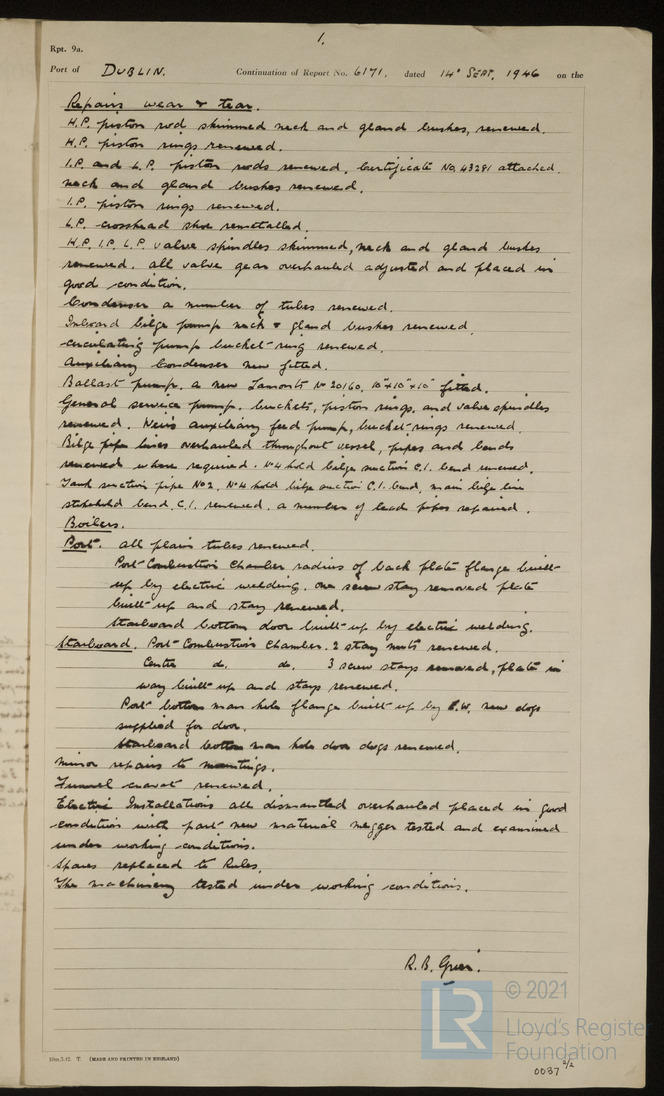 1.
Rpt. 9a.
Port of DUBLIN. Continuation of Report No. 6171, dated 14th SEPT. 1946 on the
Repairs wear & tear.
H.P. piston rod skimmed neck and gland bushes, renewed.
H.P. piston rings renewed.
I.P. and L.P. piston rods renewed, Certificate No. 43281 attached.
neck and gland bushes renewed.
I.P. piston rings renewed.
L.P. crosshead shoe remetalled.
H.P. I.P. L.P. valve spindles skimmed, neck and gland bushes
renewed. all valve gear overhauled adjusted and placed in
good condition.
Condenser a number of tubes renewed.
Inboard bilge pump neck & gland bushes renewed.
circulating pump bucket-ring renewed.
Auxiliary Condenser new fitted.
Ballast pump. a new Lamonts No 20160, 10"x10"x10" fitted.
General service pump. buckets, piston rings, and valve spindles
renewed. Weirs auxiliary feed pump, bucket-rings renewed.
Bilge pipe lines overhauled throughout vessel, pipes and bends
renewed where required. No 4 hold bilge suction C.I. bend renewed.
Tank suction pipe No 2, No 4 hold bilge suction C.I. bend, main bilge line
stokehold bend C.I. renewed. a number of lead pipes repaired.
Boilers.
Port. all plain tubes renewed.
Port Combustion Chamber radius of back plate flange built-
up by electric welding. one screw stay removed plate
built-up and stay renewed.
Starboard bottom door built-up by electric welding.
Starboard. Port Combustion Chamber. 2 stay nuts renewed.
Centre do. do. 3 screw stays removed, plate in
way built-up and stays renewed.
Port bottom man hole flange built-up by E.W. new dogs
supplied for door.
Starboard bottom man hole door dogs renewed.
Minor repairs to mountings.
Funnel cravat renewed.
Electric Installations all dismantled overhauled placed in good
condition with part new material megger tested and examined
under working conditions.
Spares replaced to Rules.
The machinery tested under working conditions.
R. B.
© 2021
LR Lloyd's Register
Foundation
10m,7.42. T. (MADE AND PRINTED IN ENGLAND)
0037 2/2